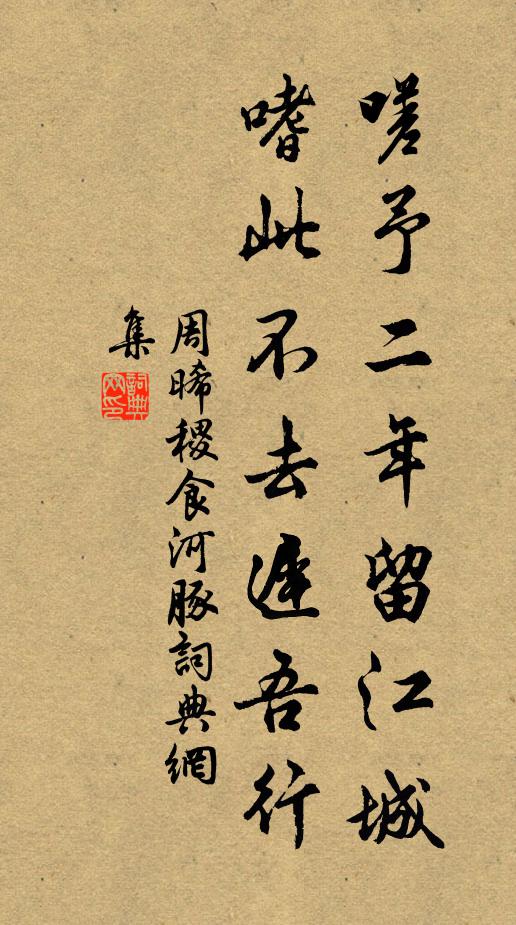 嗟予二年留江城
嗜此不去遲吾行
周晞稷食河豚詞典網
集
詞典網印